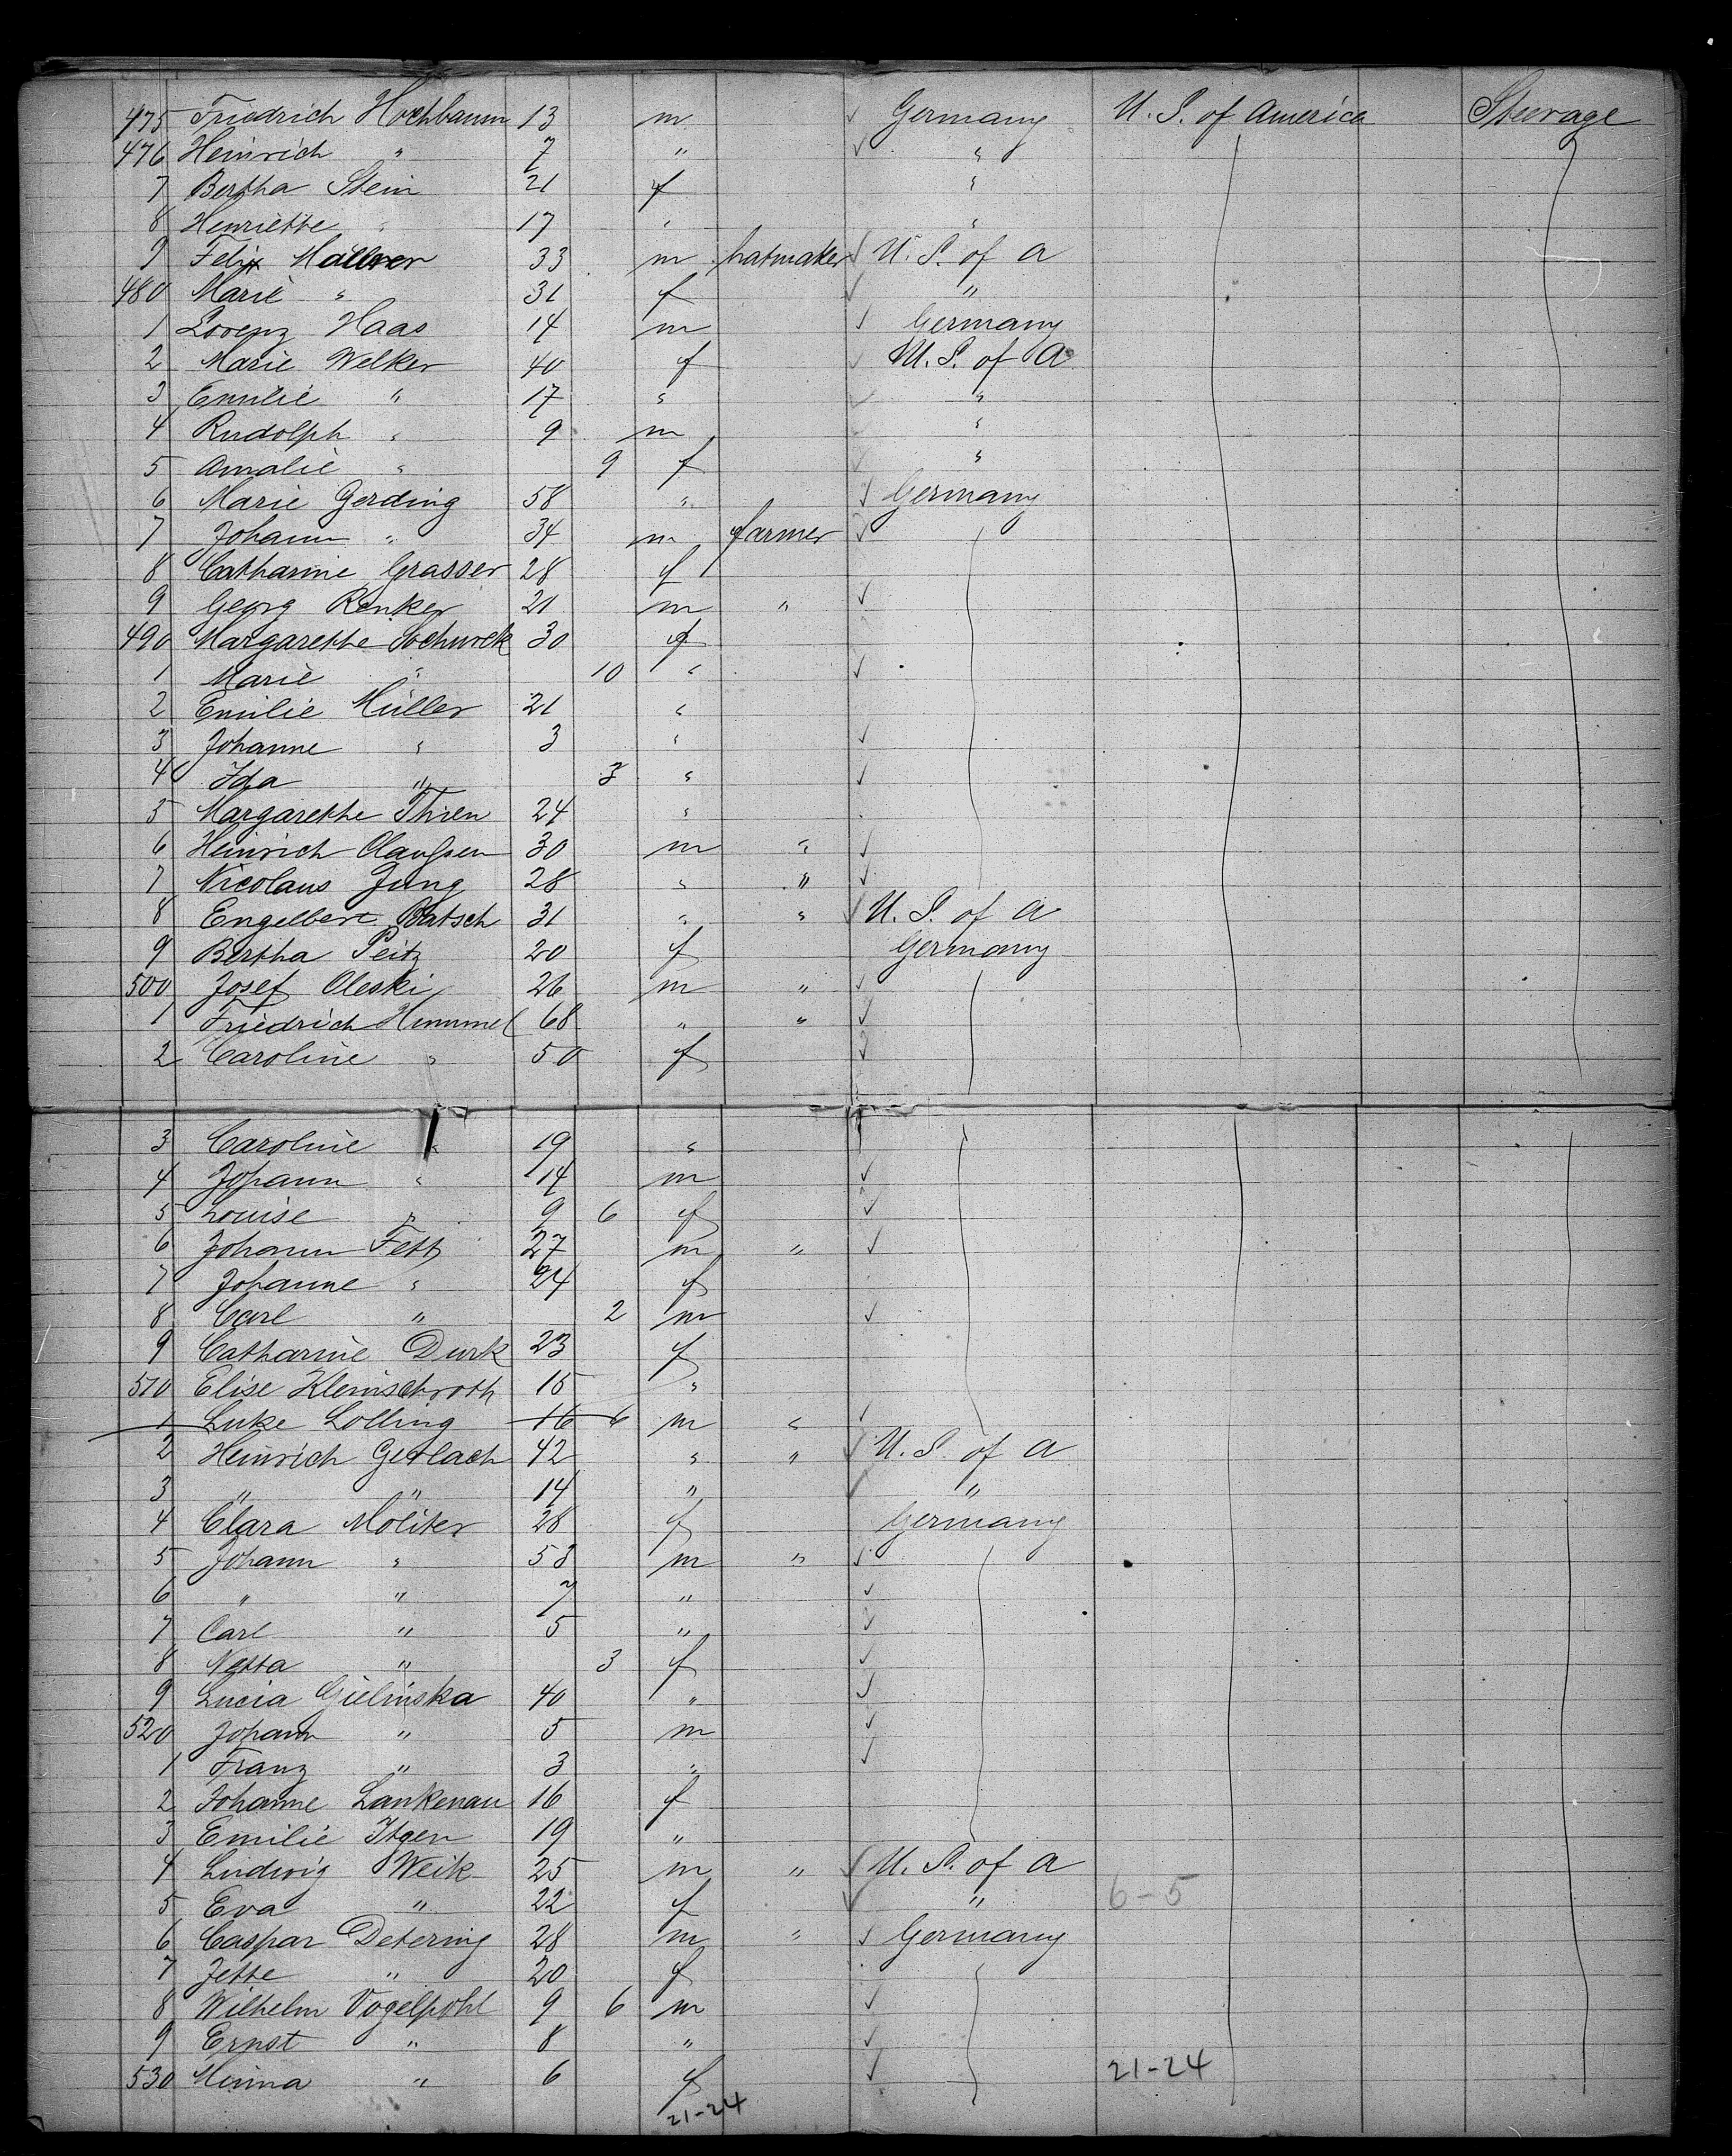 475 Friedrich Hochbaum 13 m Germany U. S. of America Steerage
476 Heinrich " 7 " "
7 Bertha Stein 21 f "
8 Henriette " 17 " "
9 Felix 33 m hatmaker U. S. of A
480 Marie " 31 f "
1 Lorenz Haas 14 m Germany
2 Marie Welker 40 f U. S. of A
3 Emilie " 17 " "
4 Rudolph " 9 m "
5 Amalie " 9 f "
6 Marie Gerding 58 " Germany
7 Johann " 34 m farmer
8 Catharine Grasser 28 f
9 Georg Renker 21 m "
490 Margarethe 30 f
1 Marie " 10 "
2 Emilie Müller 21 "
3 Johanne " 3 "
4 Ida " 3 "
5 Margarethe Thien 24 "
6 Heinrich Claußen 30 m "
7 Nicolaus Jung 28 " "
8 Engelbert Batsch 31 " " U. S. of A
9 Bertha Peitz 20 f Germany
500 Josef Oleski 26 m "
1 Friedrich Himmel 68 " "
2 Caroline " 50 f
3 Caroline " 19 "
4 Johann " 14 m
5 Louise " 9 6 f
6 Johann Fett 27 m "
7 Johanne " 24 f
8 Carl " 2 m
9 Catharine Durk 23 f
510 Elise Kleinschroth 15 "
1 Luke Lolling 16 6 m "
2 Heinrich Gerlach 42 " " U. S. of A
3 " " 14 " "
4 Clara Moliter 28 f Germany
5 Johann " 53 m "
6 " " 7 "
7 Carl " 5 "
8 Netta " 3 f
9 Lucia Gielinska 40 "
520 Johann " 5 m
1 Franz " 3 "
2 Johanne Lankenau 16 f
3 Emilie Itgen 19 "
4 Ludwig Weik 25 m " U. S. of A
5 Eva " 22 f " 6-5
6 Caspar Detering 28 m " Germany
7 Jette " 20 f
8 Wilhelm Vogelpohl 9 6 m
9 Ernst " 8 "
530 Minna " 6 f 21-24
21-24